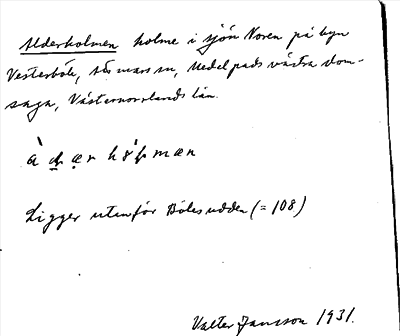 Alderholmen holme i sjön Noren på byn
Västerböle, tås mars sn, Medelpads västra dom-
saga, Västernorrlands län.
Ligger utanför Bölesudden (= 108)
Valter Jansson 1931.